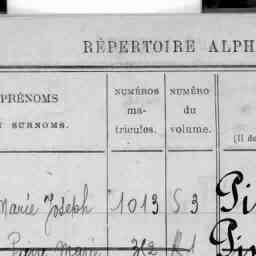 RÉPERTOIRE ALPH
PRÉNOMS
SURNOMS.
NUMÉROS
ma-
tricules.
NUMÉRO
du
volume.
(Il d
Marie Joseph 1013 S 3 Pi
Pierre Marie 362 R 1